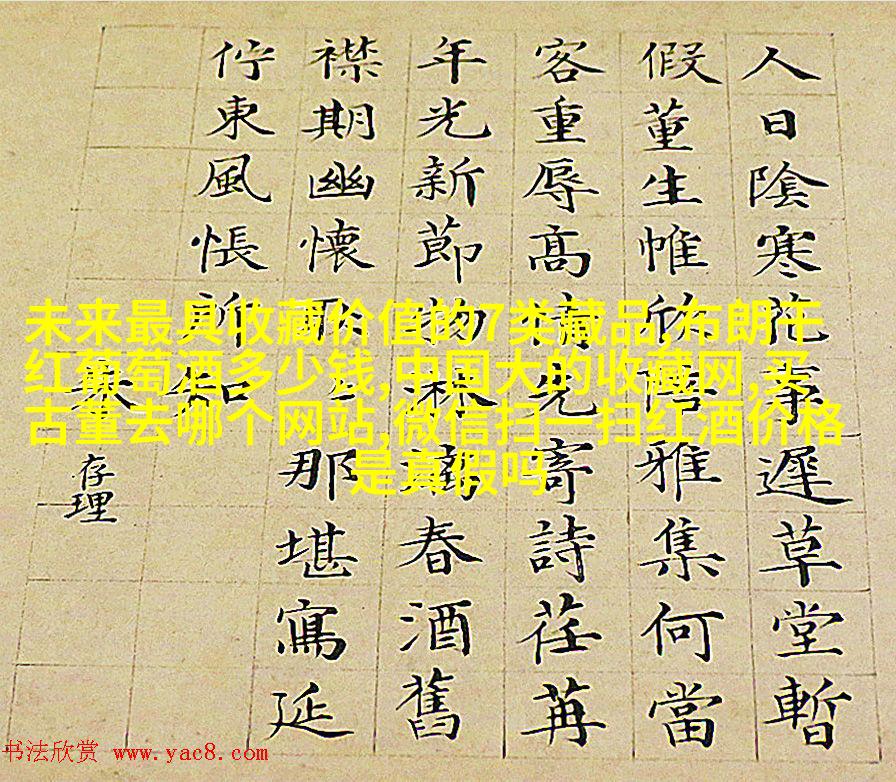 人日陰寒花事遲草堂暫
假董生帷欣陪雅集何當
客重辱高情先寄詩荏苒
年光新節物淋漓春酒舊
襟期幽懷那堪寫延
佇東風悵所知
存理
未来最具收藏价值的7类藏品,布朗干
红葡萄酒多少钱,中国大的收藏网,买
古董去哪个网站,微信扫一扫红酒价格
是真假吗
书法欣赏 www.yac8.com